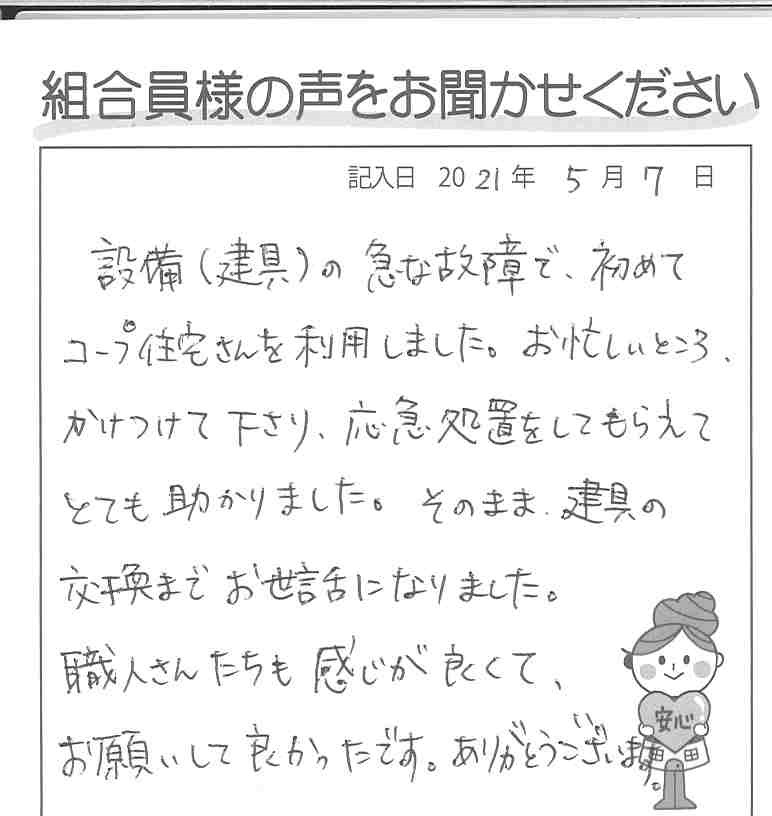 組合員様の声をお聞かせください
記入日 2021年 5月7日
設備(建具)の急な故障で、初めて
コープ住宅さんを利用しました。お忙しいところ、
かけつけて下さり、応急処置をしてもらえて
とても助かりました。そのまま、建具の
交換までお世話になりました。
職人さんたちも感じが良くて、
お願いして良かったです。ありがとうございます。
安心